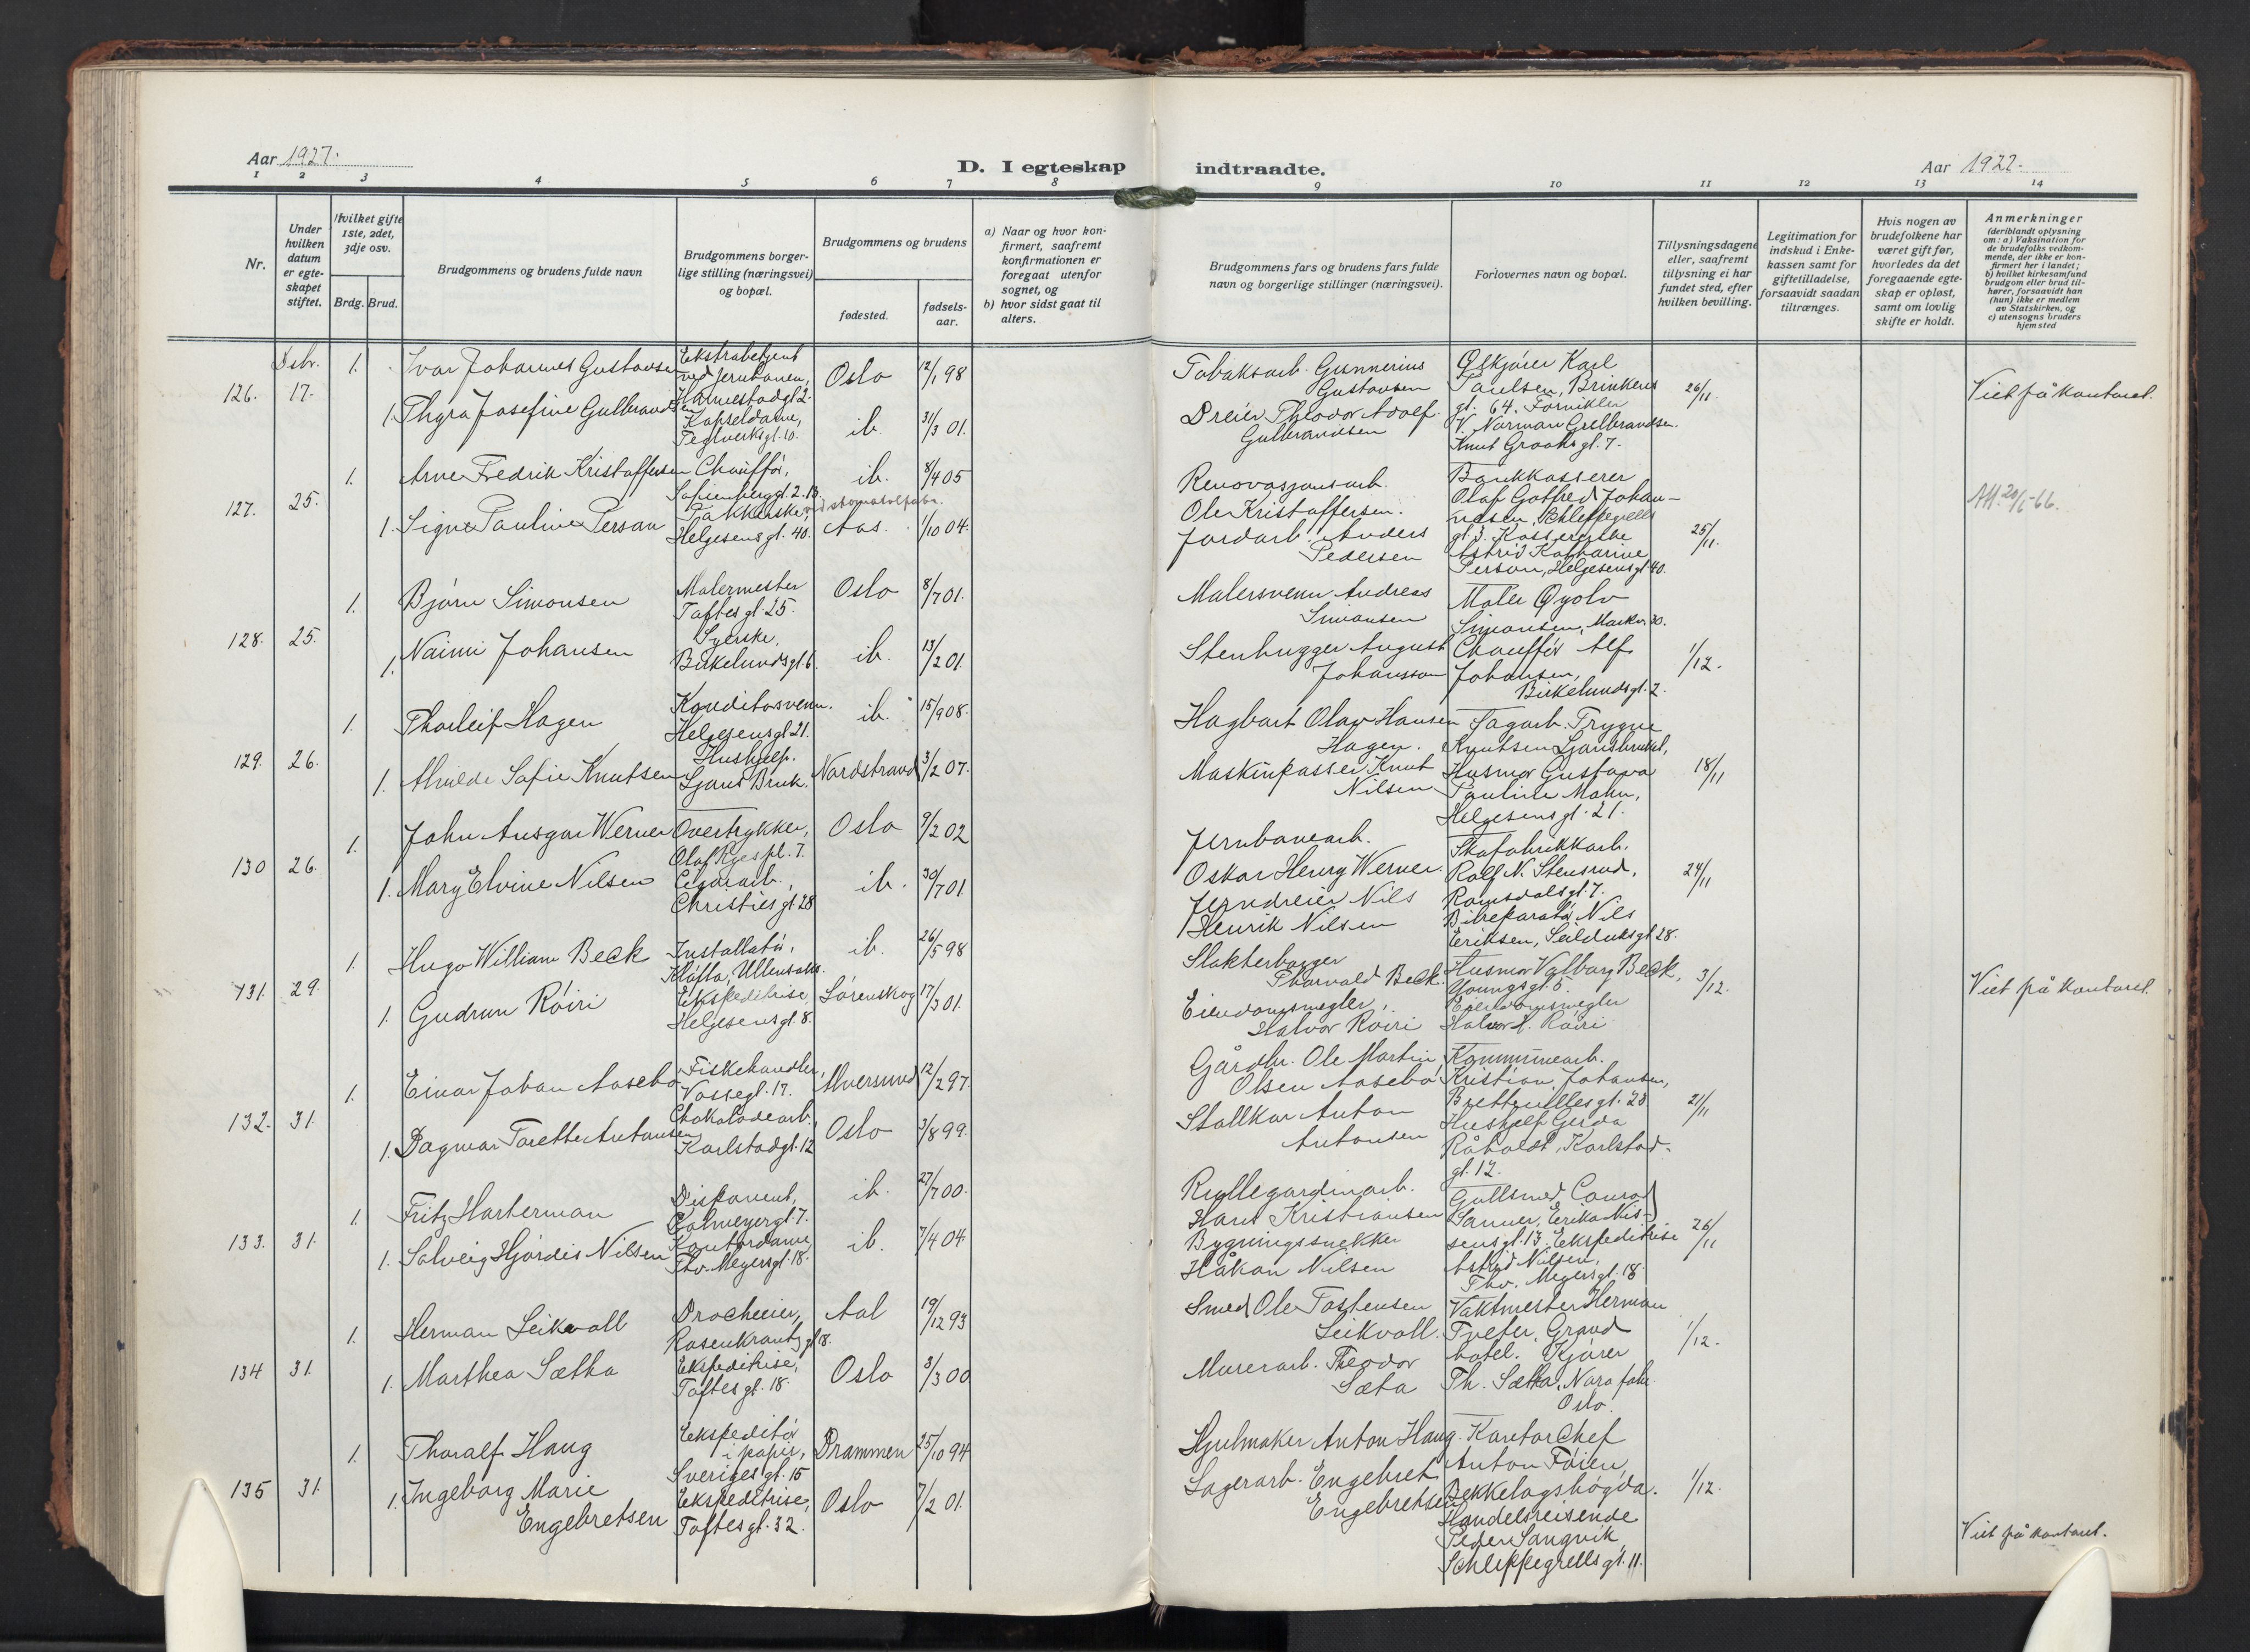 Aar 1927.
D. I egteskap
1 2 3 4 5 6 7 8
Nr.
Under hvilken datum er egteskapet stiftet.
Hvilket gifte 1ste, 2det, 3dje osv.
Brdg. Brud.
Brudgommens og brudens fulde navn
Brudgommens borgerlige stilling (næringsvei) og bopæl.
Brudgommens og brudens
fødested.
fødselsaar.
a) Naar og hvor konfirmert, saafremt konfirmationen er foregaat utenfor sognet, og
b) hvor sidst gaat til alters.
Dsbr.
126. 17.
1. Ivar Johannes Gustavsen
Ekstrabetjent
ved jernbanen,
Harmestadgt 2.
Oslo 12/1 98
1. Thyra Josefine Gulbrandsen
Kapseldame,
Teglverksgt. 10.
ib. 31/3 01.
127. 25.
1. Arne Fredrik Kristoffersen
Chauffør,
Sofienberggt. 2.13.
ib. 8/4 05
1. Signe Pauline Person
Pakkerske,
Helgesens gt. 40.
Aas. 1/10 04.
128. 25.
1. Bjørn Simonsen
Malermester
Toftes gt 25.
Oslo 8/7 01.
1. Naimi Johansen
Syerske,
Birkelundsgt. 6.
ib. 13/2 01.
129. 26.
1. Thorleif Hagen
Konditorsvenn.
Helgesensgt 21.
ib. 15/9 08.
1. Alvilde Sofie Knutsen
Hushjelp.
Ljans Bruk.
Nordstrand 3/2 07.
130 26.
1. John Ansgar Werner
Overtrykker,
Olaf Ryes pl. 7.
Oslo 9/2 02
1. Mary Elvine Nilsen
Cigararb.,
Christies gt 28
ib. 30/7 01.
131. 29.
1. Hugo William Beck
Installatør,
Kløfta, Ullensaker.
ib. 26/5 98
1. Gudrun Røiri
Ekspeditrise,
Helgesens gt. 8.
Lørenskog 17/3 01.
132. 31.
1. Einar Johan Aasebø
Fiskehandler,
Vossegt. 17.
Alversund 12/2 97.
1. Dagmar Torette Antonsen
Chokoladearb.
Karlstadgt. 12
Oslo 3/8 99.
133. 31.
1. Fritz Harterman
Disponent,
Calmeyergt. 7.
ib. 27/7 00.
1. Solveig Hjørdis Nilsen
Kontordame
Thv. Meyersgt. 18.
ib. 7/4 04.
134 31.
1. Herman Leikvoll
Drocheeier,
Rosenkrantz gt 18.
Aal 19/12 93
1. Marthea Sætha
Ekspeditrise,
Toftes gt. 18.
Oslo 3/3 00
135 31.
1. Thoralf Haug
Ekspeditør
i papir,
Sveriges gt. 15
Drammen 25/10 94
1. Ingeborg Marie
Engebretsen
Ekspeditrise,
Toftes gt. 32.
Oslo 7/2 01.
indtraadte.
Aar 1922.
9 10 11 12 13 14
Brudgommens fars og brudens fars fulde navn og borgerlige stillinger (næringsvei).
Forlovernes navn og bopæl.
Tillysningsdagene eller, saafremt tillysning ei har fundet sted, efter hvilken bevilling.
Legitimation for indskud i Enkekassen samt for giftetilladelse, forsaavidt saadan tiltrænges.
Hvis nogen av brudefolkene har været gift før, hvorledes da det foregaaende egteskap er opløst, samt om lovlig skifte er holdt.
Anmerkninger
(deriblandt oplysning om: a) Vaksination for de brudefolks vedkommende, der ikke er konfirmert her i landet; b) hvilket kirkesamfund brudgom eller brud tilhører, forsaavidt han (hun) ikke er medlem av Statskirken, og c) utensogns bruders hjemsted
Tobaksarb. Gunnerius
Gustavsen
Dreier Theodor Adolf
Gulbrandsen
Ølkjører Karl
Paulsen, Brinkens
gt. 64. Fornikler
V. Norman Gulbrandsen.
Knut Graahs gt. 7.
26/11.
Viet på kontoret.
Renovasjonsarb.
Ole Kristoffersen.
Jordarb. Anders
Pedersen
Bankkasserer
Olaf Gotfred Johan-
nesen, Schleppegrells
gt 3. Kassererske
Astrid Katharine
Person, Helgesensgt 40.
25/11.
Att. 20/6-66.
Malersvenn Andreas
Simonsen
Stenhugger August
Johansson
Maler Øyolv
Simonsen, Markv. 30.
Chauffør Alf
Johansen,
Birkelundsgt. 2.
1/12.
Hagbart Olav Hansen
Hagen.
Maskinpasser Knut
Nilsen
Sagarb. Trygve
Knutsen Ljansbruket,
Husmor Gustava
Pauline Mohn,
Helgesensgt. 21.
18/11
Jernbanearb.
Oskar Henry Werner.
Jerndreier Nils
Henrik Nilsen
Skofabrikkarb.
Rolf N. Stensrud,
Romsdalsgt. 7.
Bilreparatør Nils
Eriksen, Seilduksgt 28.
24/11
Slakterborger
Thorvald Beck.
Eiendomsmegler,
Halvor Røiri
Husmor Valborg Beck,
Youngsgt. 6.
Eiendomsmegler
Halvor H. Røiri
3/12.
Viet på kontoret.
Gårdbr. Ole Martin
Olsen Aasebø
Stallkar Anton
Antonsen
Kommunearb.
Kristian Johansen,
Brettevillesgt. 23
Hushjelp Gerda
Råholdt, Karlstad-
gt. 12.
21/11
Rullegardinarb.
Hans Kristiansen
Bygningssnekker
Håkon Nilsen
Gullsmed Conrad
Sanner, Erika Nis-
sensgt. 13. Ekspeditrise
Astrid Nilsen,
Thv. Meyersgt. 18
26/11
Smed Ole Tostensen
Leikvoll.
Murerarb. Theodor
Sæta
Vaktmester Herman
Tveter, Grand
hotel. Kjører
Th. Sætha, Nora fabr.
Oslo.
1/12.
Hjulmaker Anton Haug.
Lagerarb. Engebret
Engebretsen
Kontorchef
Anton Føien,
Bekkelagshøgda.
Handelsreisende
Peder Sangvik,
Schleppegrells gt. 11.
1/12.
Viet på kontoret.